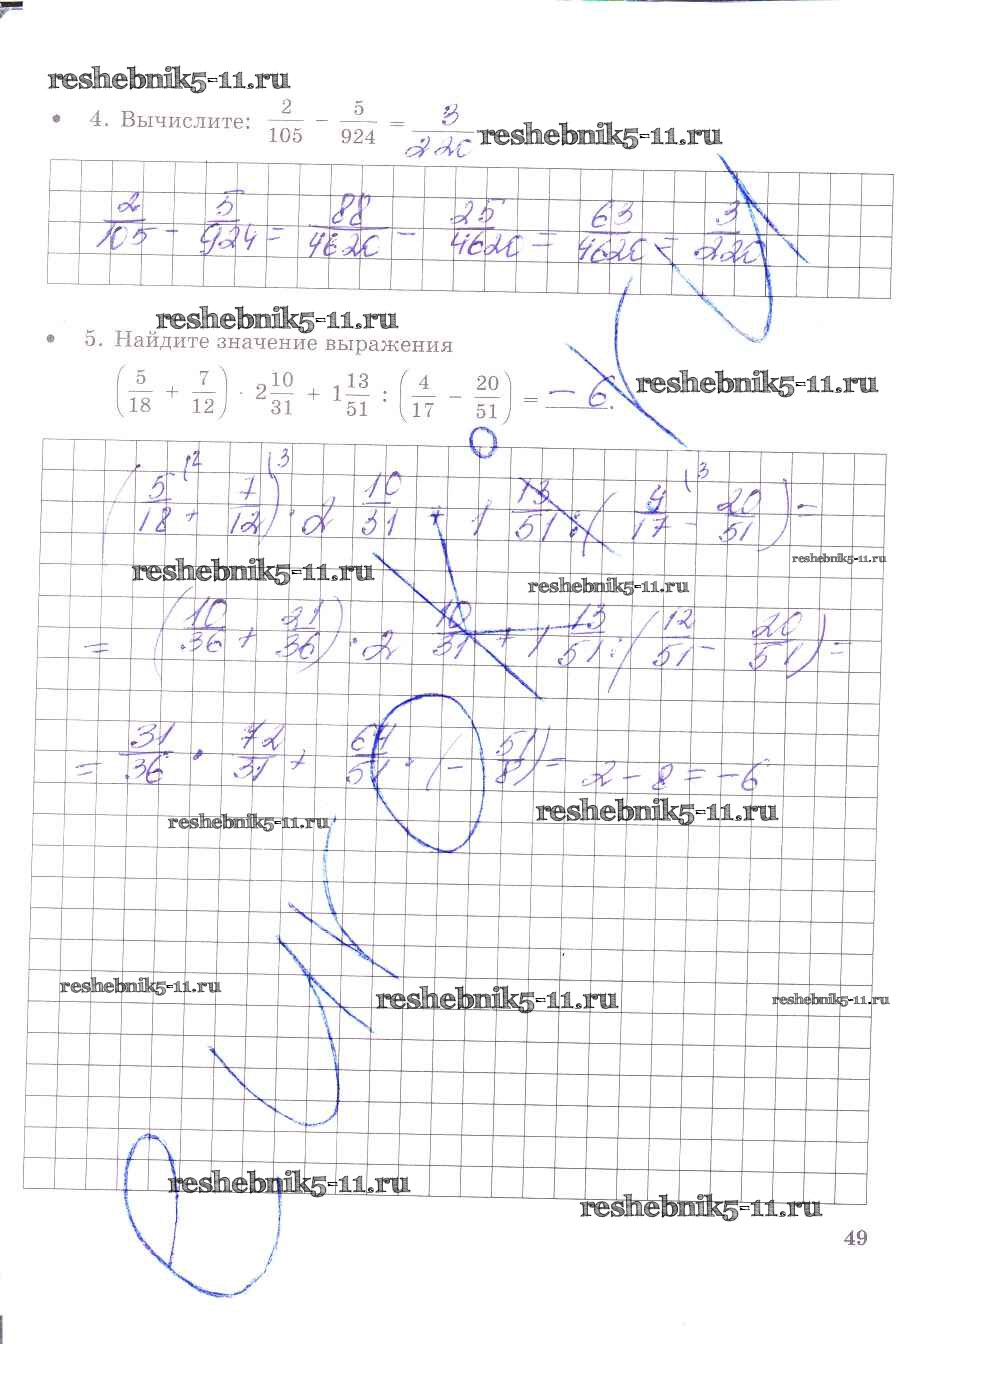 reshebnik5-11.ru
• 4. Вычислите: 2/105 − 5/924 = 3/220 reshebnik5-11.ru
2/105 − 5/924 = 88/4620 − 25/4620 = 63/4620 = 3/220
reshebnik5-11.ru
• 5. Найдите значение выражения
(5/18 + 7/12) · 2 10/31 + 1 13/51 : (4/17 − 20/51) = −6. reshebnik5-11.ru
(5/18 \2 + 7/12 \3) · 2 10/31 + 1 13/51 : (4/17 \3 − 20/51) =
reshebnik5-11.ru
reshebnik5-11.ru reshebnik5-11.ru
= (10/36 + 21/36) · 2 10/31 + 1 13/51 : (12/51 − 20/51) =
= 31/36 · 72/31 + 64/51 · (− 51/8) = 2 − 8 = −6
reshebnik5-11.ru reshebnik5-11.ru
reshebnik5-11.ru reshebnik5-11.ru reshebnik5-11.ru
reshebnik5-11.ru
reshebnik5-11.ru
49